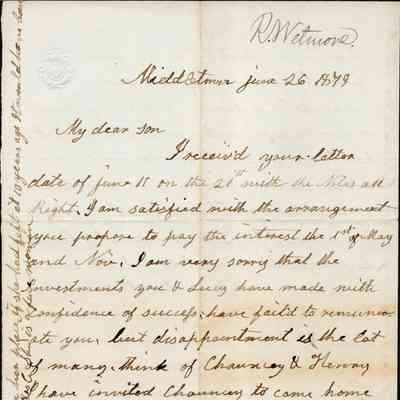 R. Wetmore.
Middletown june 26 1879
My dear son
I receiv'd your letter
date of june 11 on the 21st with the Notes all
Right. I am satisfied with the arrangement
you propose to pay the interest the 1st of May
and Nov. I am very sorry that the
investments you & Lucy have made with
confidence of success have fail'd to remuner-
ate you, but disappointment is the lot
of many, think of Chauncey & Henry
I have invited Chauncey to come home